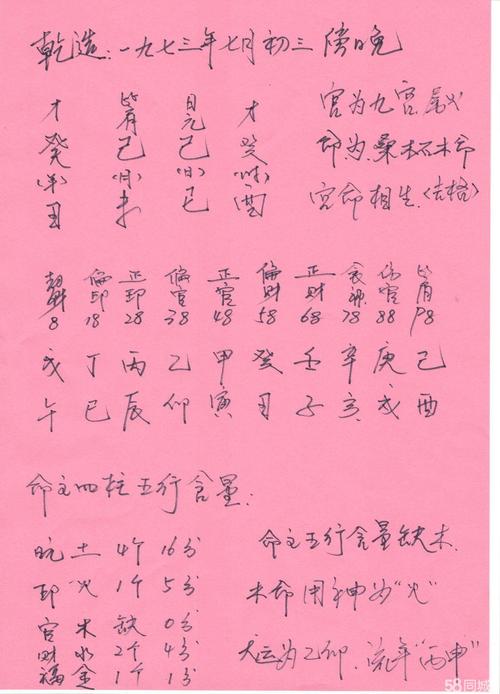 乾造:一九七三年七月初三 傍晚
才 比肩 日元 才
癸 己 己 癸
(年) (月) (日) (时)
丑 未 巳 酉
宫为九宫 属火
命 桑柘木命
宫命相生.(吉格)
偏印 正印 偏官 正官 偏财 正财 食神 伤官 比肩
8 18 28 38 48 58 68 78 88 98
戊 丁 丙 乙 甲 癸 壬 辛 庚 己
午 巳 辰 卯 寅 丑 子 亥 戌 酉
命主四柱五行含量:
土 4个 16分
印 火 1个 5分
官 木 缺 0分
财 水 2个 4分
福 金 1个 1分
命主五行含量缺木.
木命用神为"火"
大运为乙卯.流年"丙申"
58同城